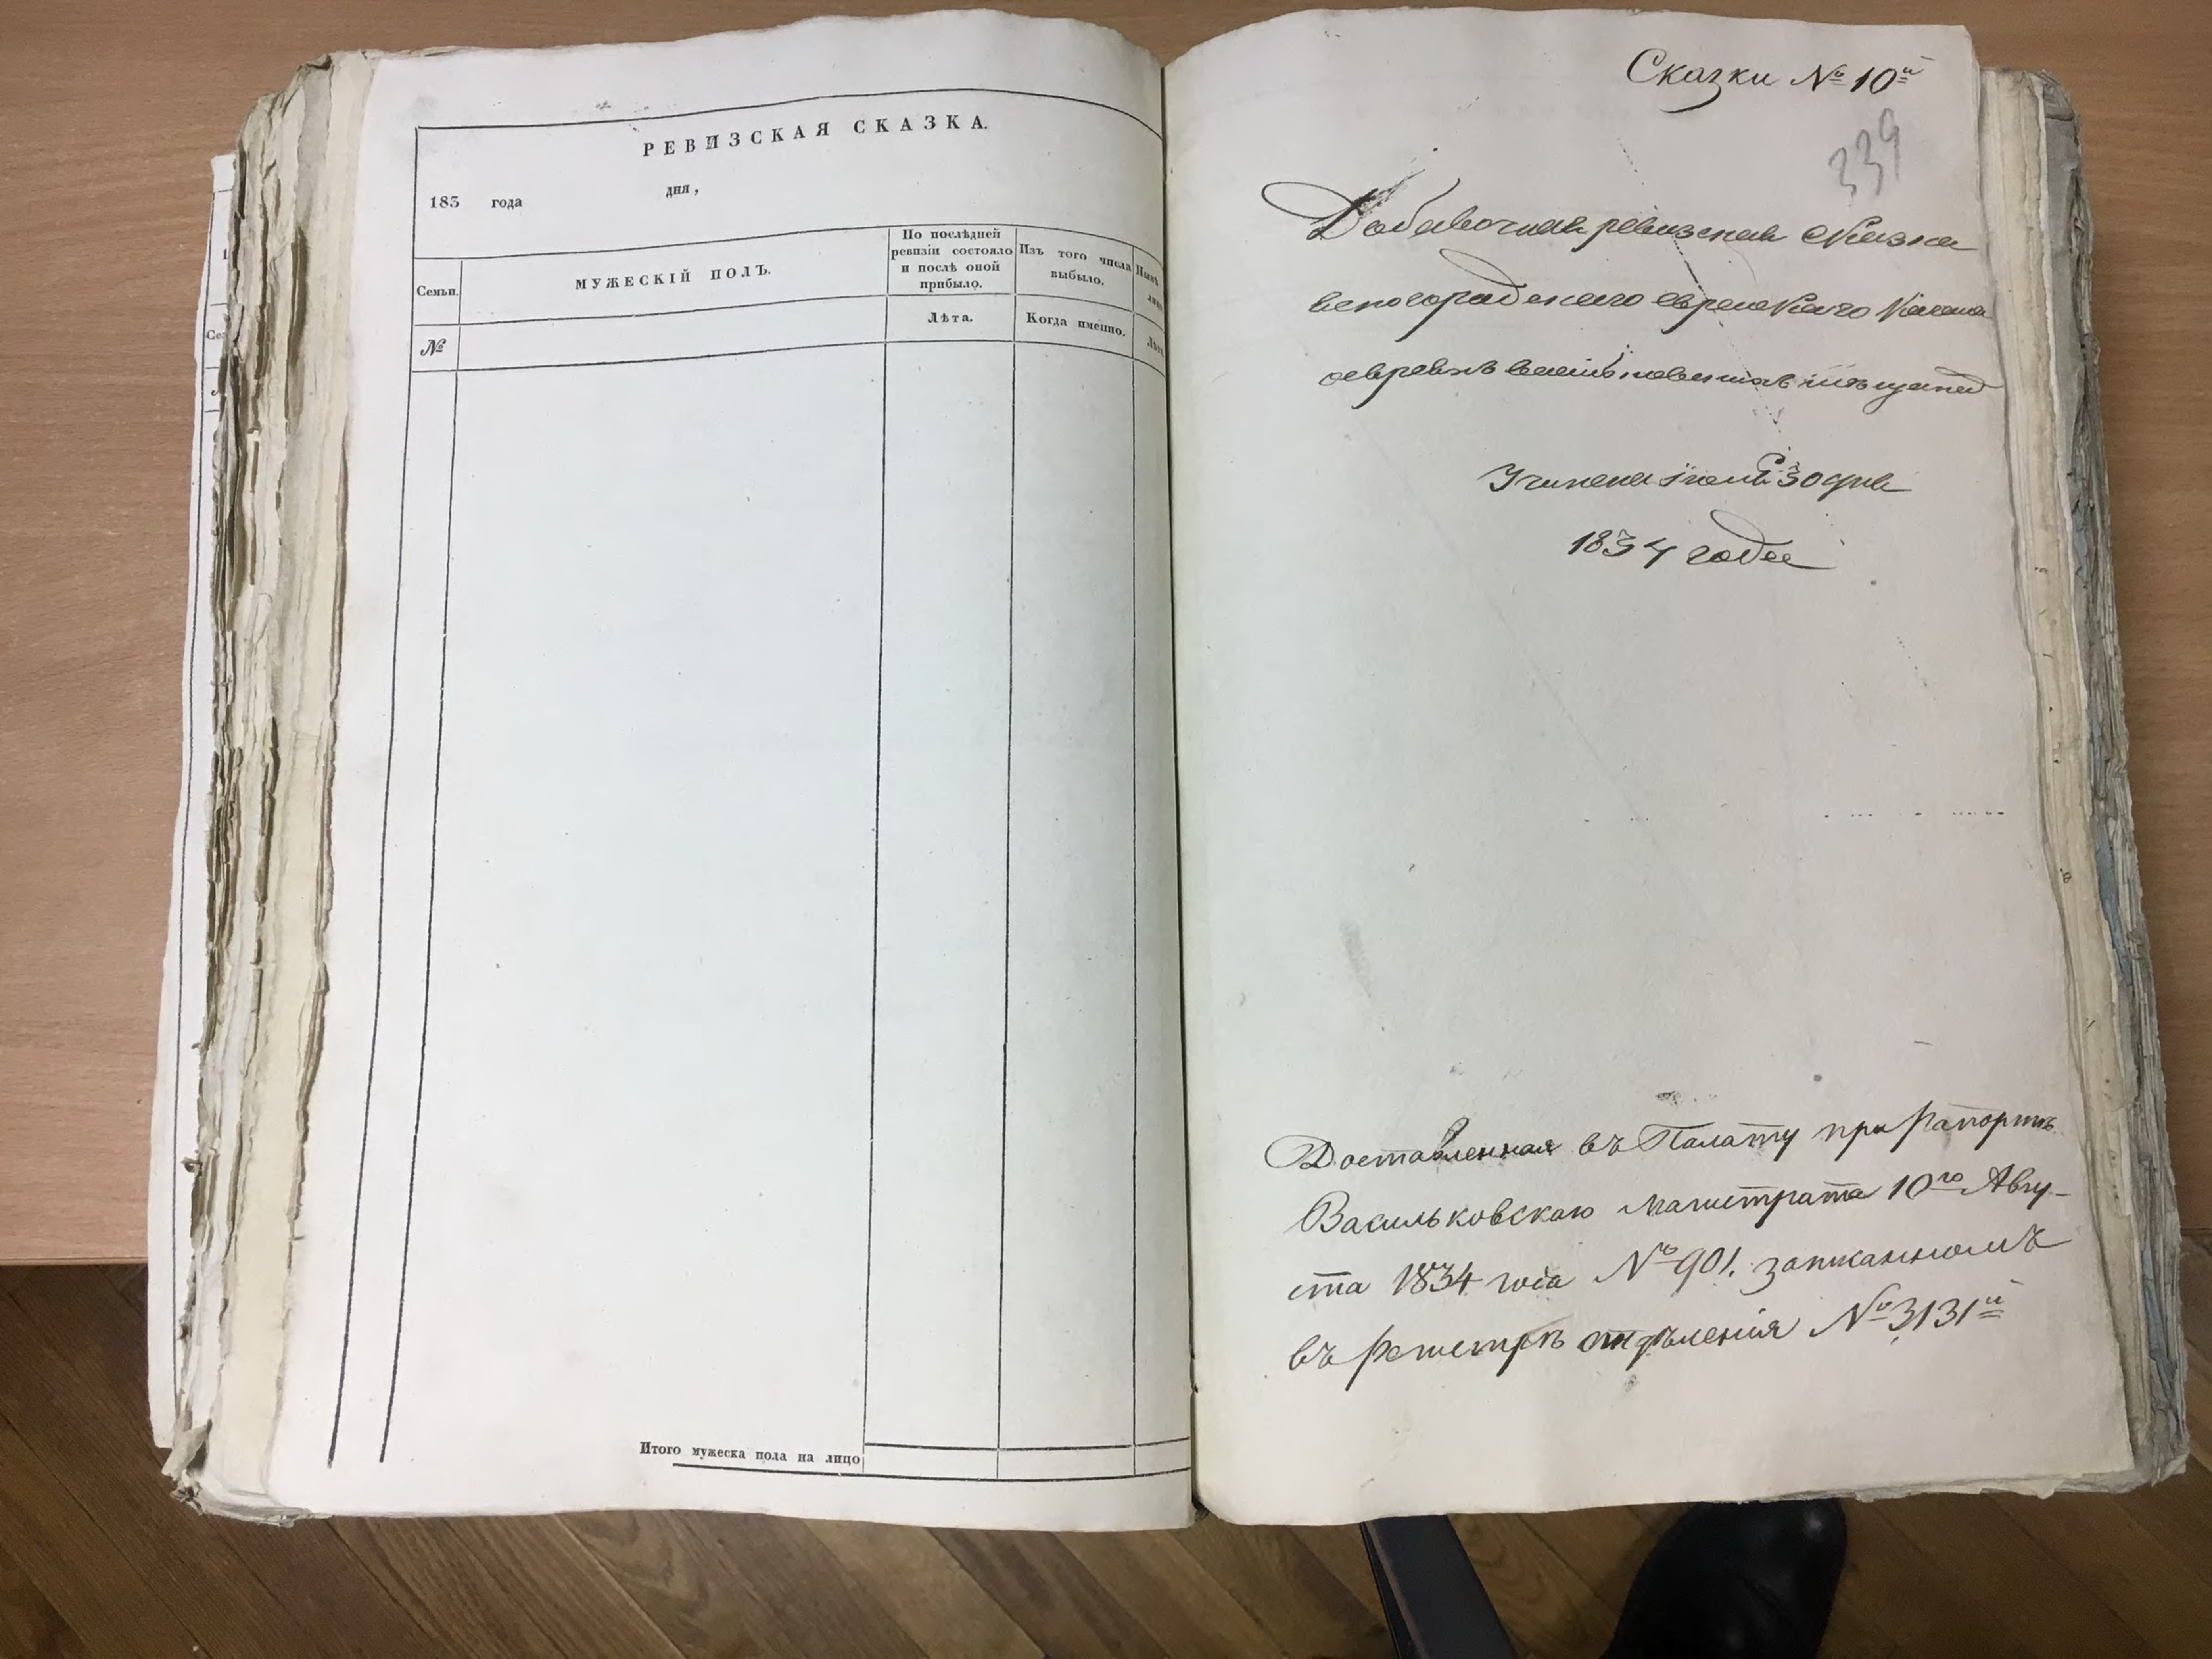 РЕВИЗСКАЯ СКАЗКА.
183 года дня,
Семьи.
МУЖЕСКІЙ ПОЛЪ.
По послѣдней ревизіи состояло и послѣ оной прибыло.
Изъ того числа выбыло.
№
Лѣта.
Когда именно.
Итого мужеска пола на лицо
Сказки № 10й
339
Добавочная ревизская сказка
еврейскаго
Учинена 30 дня
1834 года
Доставленная въ Палату при Рапортѣ
Васильковскаго Магистрата 10го Авгу-
ста 1834 года № 901. записанномъ
въ Регистрѣ отдѣленія № 3131й